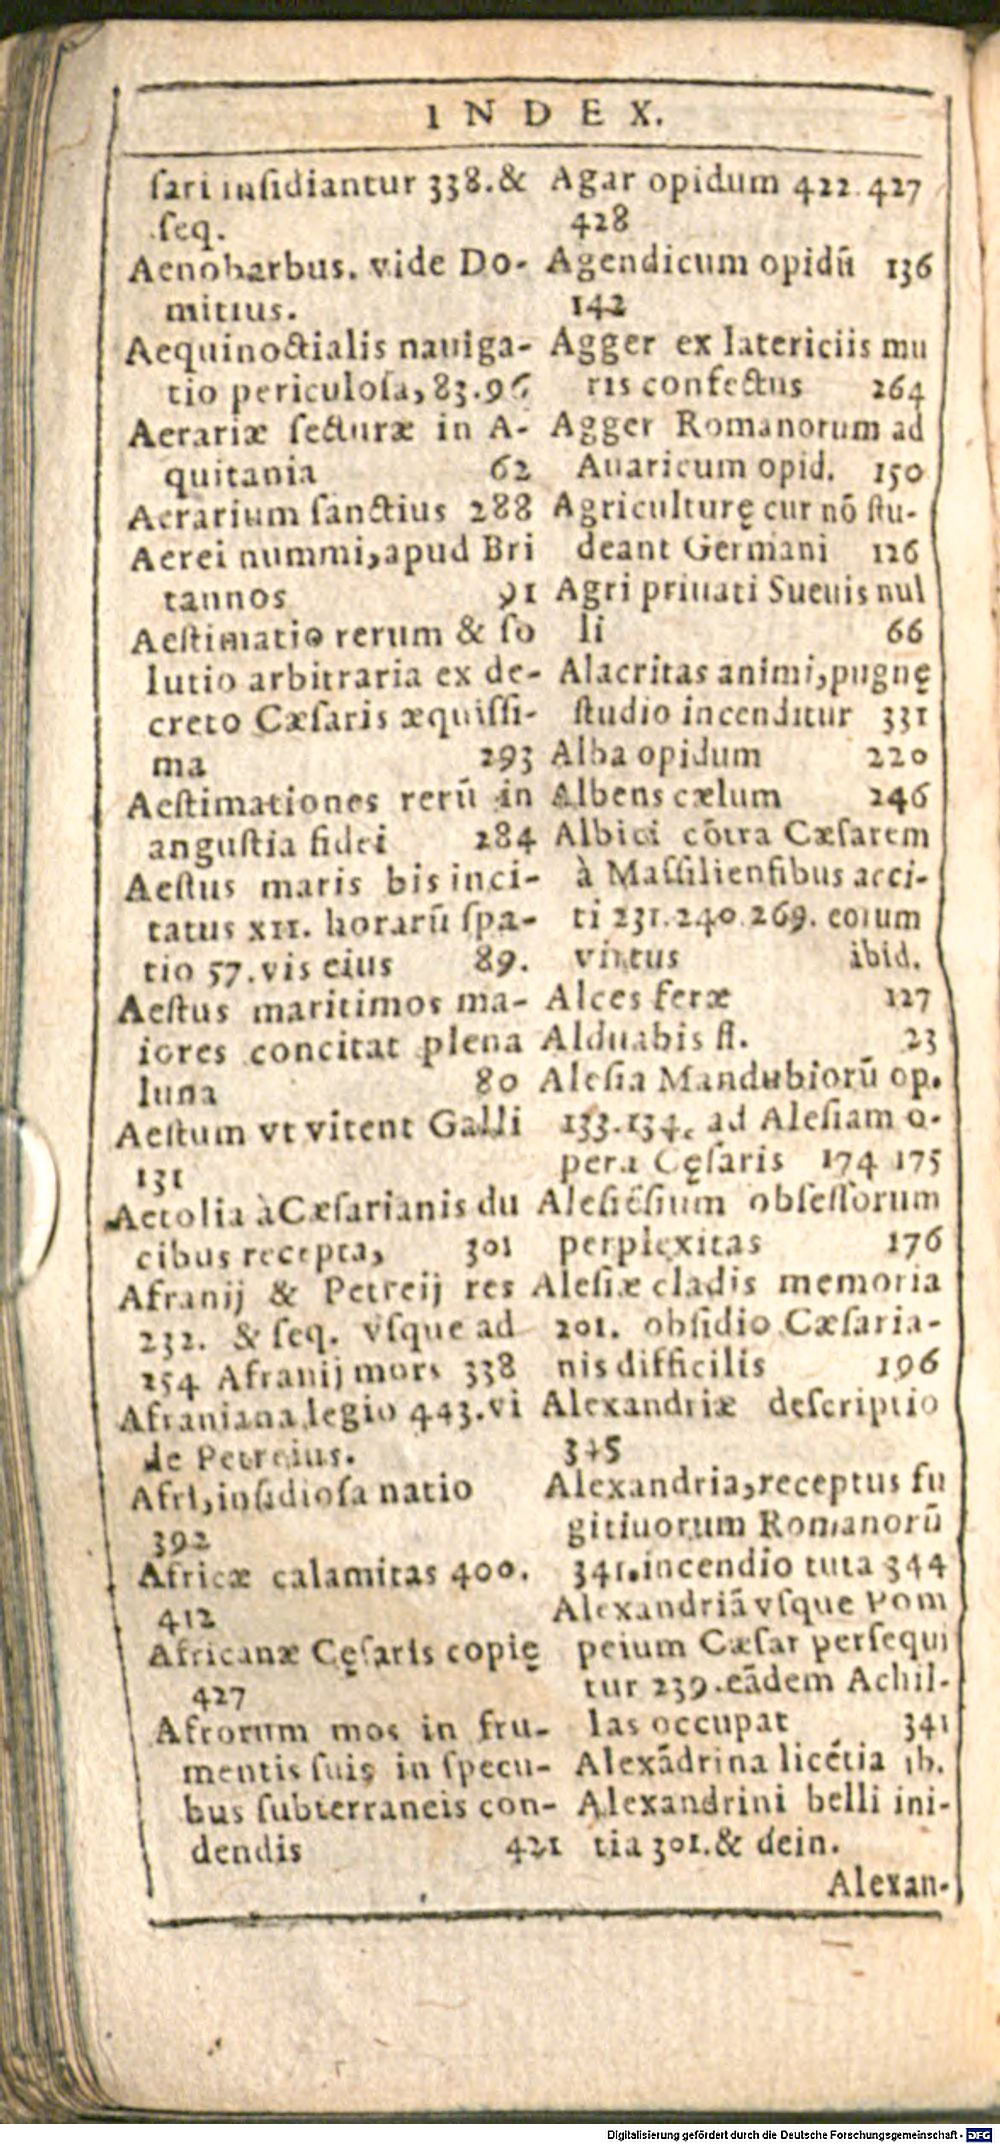 INDEX.
ſari inſidiantur 338. &
ſeq.
Aenobarbus. vide Do-
mitius.
Aequinoctialis nauiga-
tio periculoſa, 83. 96
Aerariæ ſecturæ in A-
quitania 62
Aerarium ſanctius 288
Aerei nummi, apud Bri
tannos 91
Aeſtimatio rerum & ſo
lutio arbitraria ex de-
creto Cæſaris æquiſſi-
ma 293
Aeſtimationes rerū in
anguſtia fidei 284
Aeſtus maris bis inci-
tatus XII. horarū ſpa-
tio 57. vis eius 89.
Aeſtus maritimos ma-
iores concitat plena
luna 80
Aeſtum vt vitent Galli
131
Aetolia à Cæſarianis du
cibus recepta, 301
Afranij & Petreij res
232. & ſeq. vſque ad
254 Afranij mors 338
Afraniana legio 443. vi
de Petreius.
Afri, inſidioſa natio
392
Africæ calamitas 400.
412
Africanæ Cęſaris copię
427
Afrorum mos in fru-
mentis ſuis in ſpecu-
bus ſubterraneis con-
dendis 421
Agar opidum 422. 427
428
Agendicum opidū 136
142
Agger ex latericiis mu
ris confectus 264
Agger Romanorum ad
Auaricum opid. 150
Agriculturę cur nō ſtu-
deant Germani 126
Agri priuati Sueuis nul
li 66
Alacritas animi, pugnę
ſtudio incenditur 331
Alba opidum 220
Albens cælum 246
Albici cōtra Cæſarem
à Maſſilienſibus acci-
ti 231. 240. 269. eorum
virtus ibid.
Alces feræ 127
Alduabis fl. 23
Aleſia Mandubiorū op.
133. 134. ad Aleſiam o-
pera Cęſaris 174 175
Aleſiēſium obſeſſorum
perplexitas 176
Aleſiæ cladis memoria
201. obſidio Cæſaria-
nis difficilis 196
Alexandriæ deſcriptio
345
Alexandria, receptus fu
gitiuorum Romanorū
341. incendio tuta 344
Alexandriā vſque Pom
peium Cæſar perſequi
tur 239. eādem Achil-
las occupat 341
Alexādrina licētia ib.
Alexandrini belli ini-
tia 301. & dein.
Alexan-
Digitalisierung gefördert durch die Deutsche Forschungsgemeinschaft - DFG